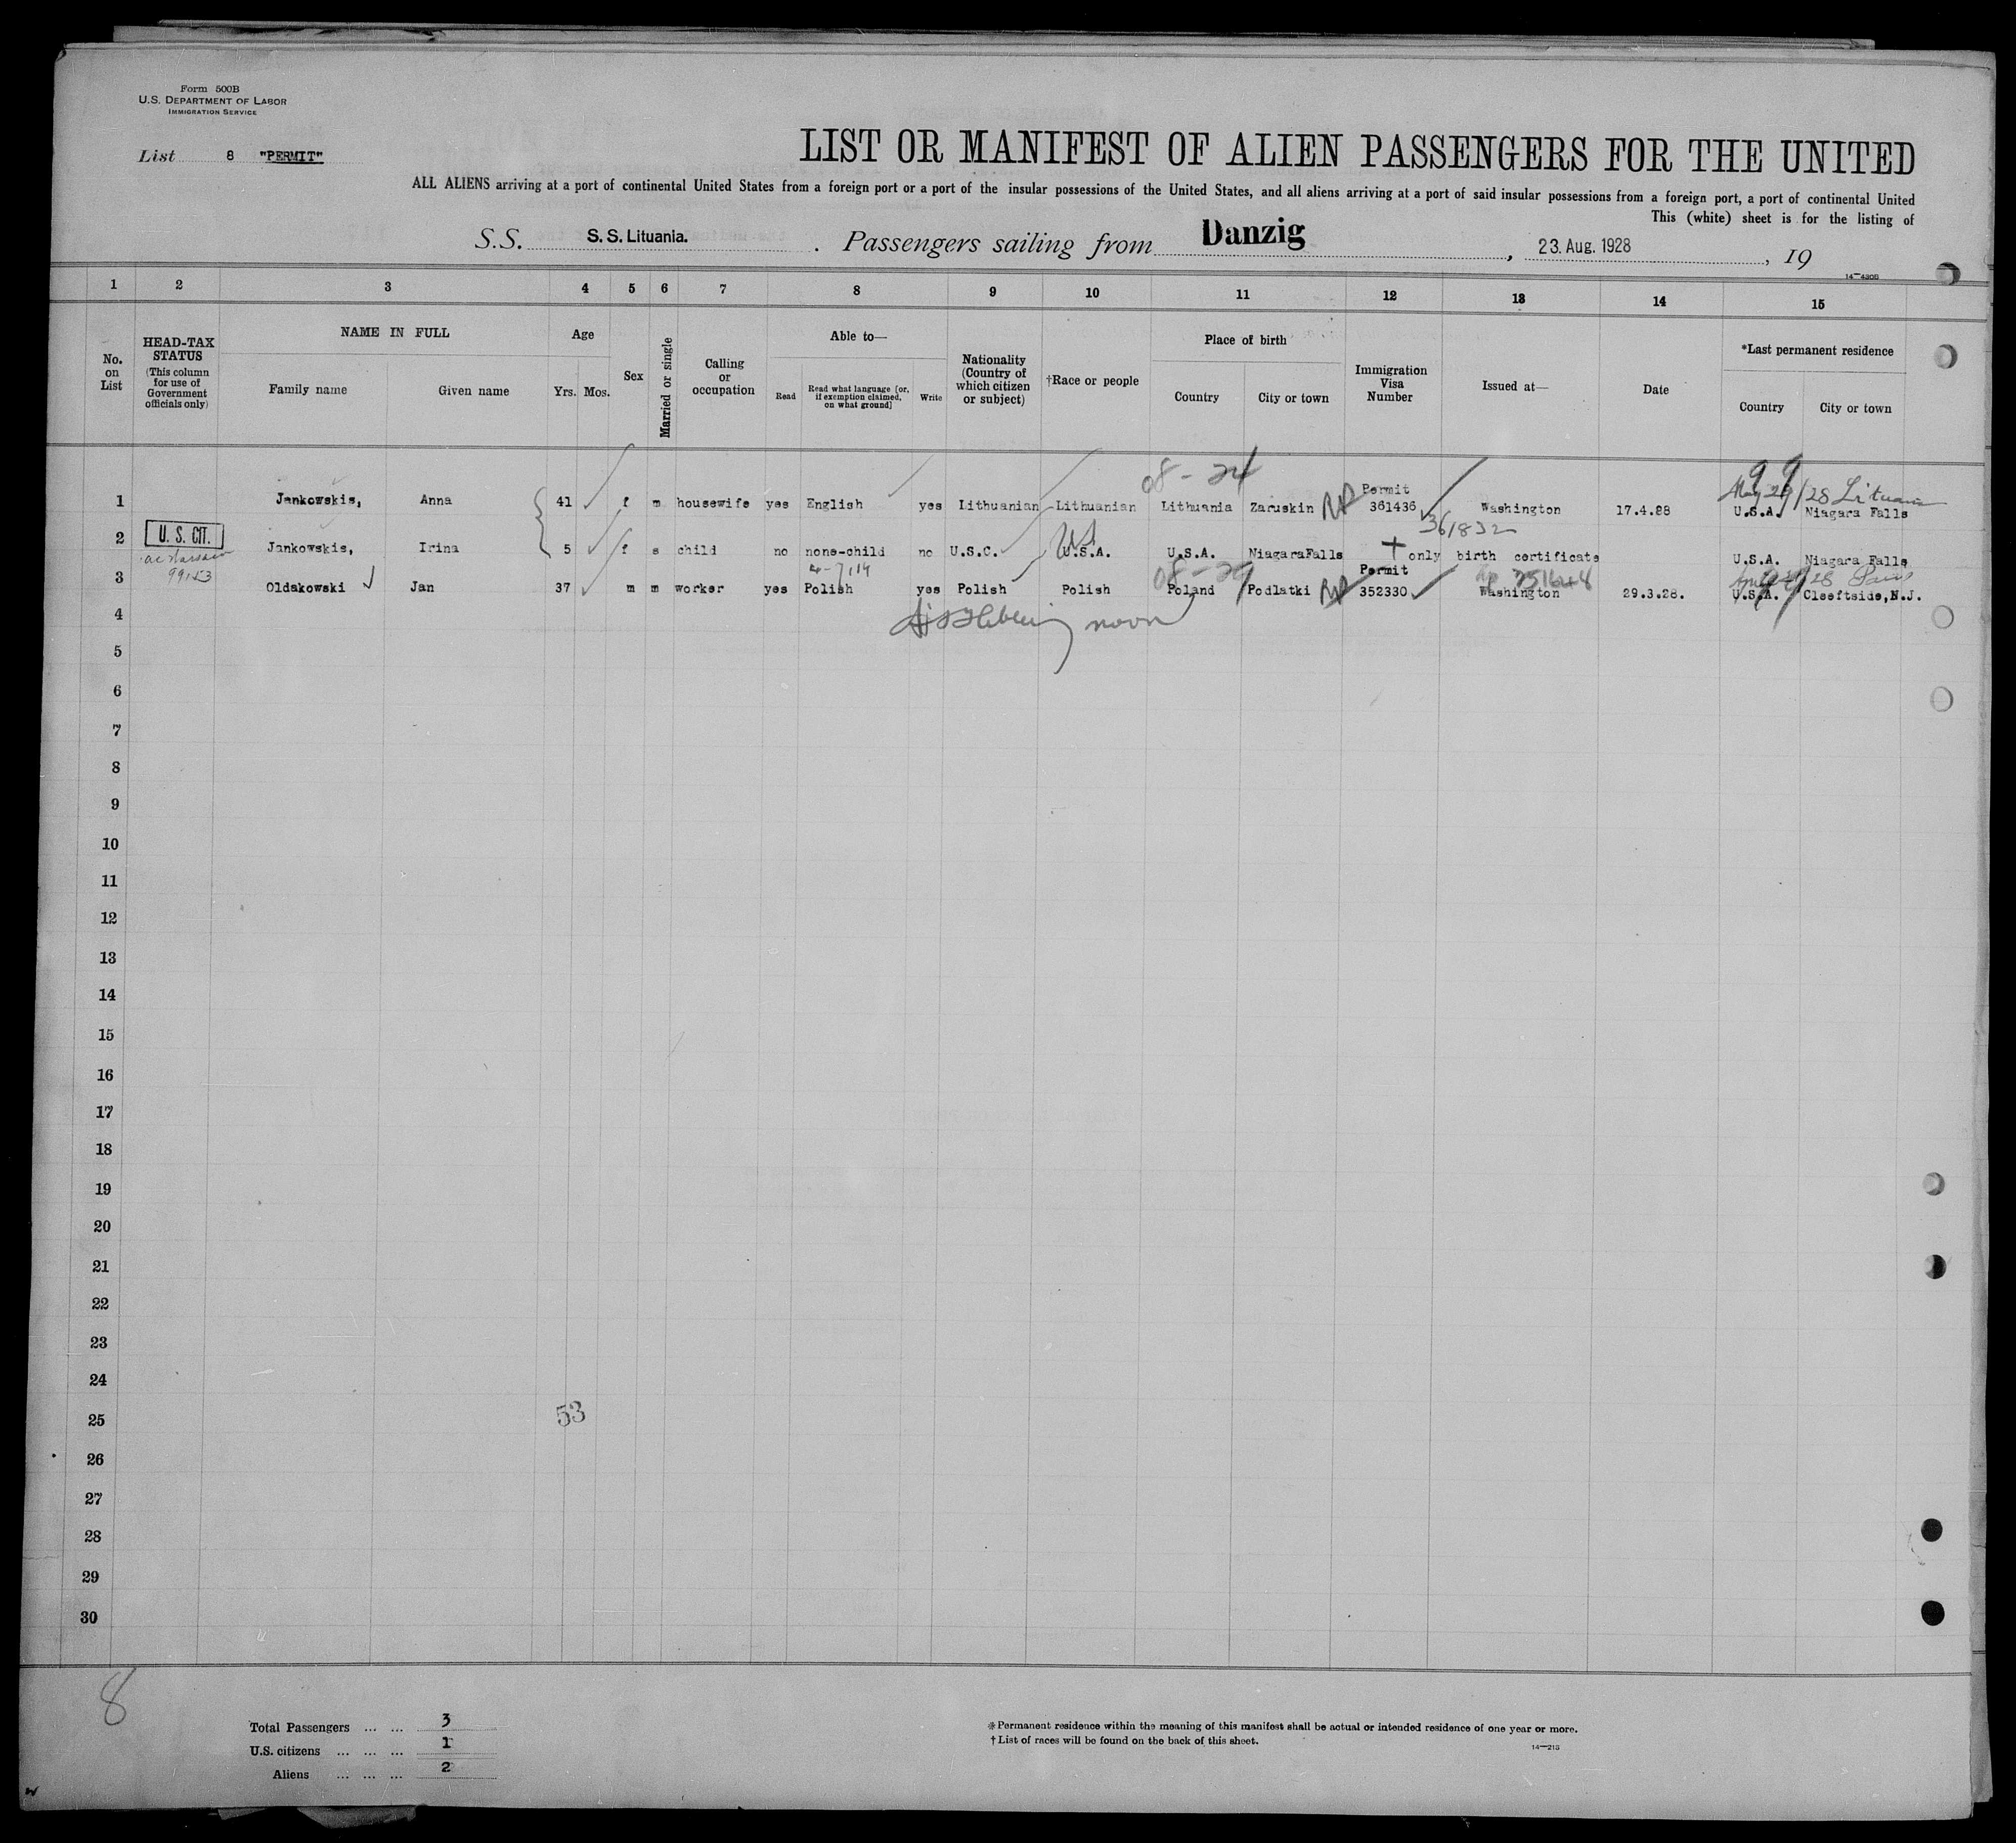 Form 500B
U.S. DEPARTMENT OF LABOR
IMMIGRATION SERVICE
List 8 "PERMIT"
LIST OR MANIFEST OF ALIEN PASSENGERS FOR THE UNITED
ALL ALIENS arriving at a port of continental United States from a foreign port or a port of the insular possessions of the United States, and all aliens arriving at a port of said insular possessions from a foreign port, a port of continental United
This (white) sheet is for the listing of
S.S. S. S. Lituania. Passengers sailing from Danzig, 23. Aug. 1928, 19
14—430B
1 2 3 4 5 6 7 8 9 10 11 12 13 14 15
No. on List
HEAD-TAX STATUS (This column for use of Government officials only)
NAME IN FULL
Family name Given name
Age
Yrs. Mos.
Sex
Married or single
Calling or occupation
Able to—
Read
Read what language [or, if exemption claimed, on what ground]
Write
Nationality (Country of which citizen or subject)
†Race or people
Place of birth
Country City or town
Immigration Visa Number
Issued at—
Date
*Last permanent residence
Country City or town
08-24 99
Permit May 29/28 Lituania
1 Jankowskis, Anna 41 f m housewife yes English yes Lithuanian Lithuanian Lithuania Zaruskin 361436 Washington 17.4.28 U.S.A. Niagara Falls
U. S. CIT. 361832
2 Jankowskis, Irina 5 f s child no none-child no U.S.C. U.S.A. U.S.A. NiagaraFalls only birth certificate U.S.A. Niagara Falls
99153 Permit
3 Oldakowski Jan 37 m m worker yes Polish yes Polish Polish Poland Podlatki 352330 Washington 29.3.28. U.S.A. Cleeftside,N.J.
4
5
6
7
8
9
10
11
12
13
14
15
16
17
18
19
20
21
22
23
24
25 53
26
27
28
29
30
8
Total Passengers ... ... 3
U.S. citizens ... ... ... 1
Aliens ... ... ... 2
* Permanent residence within the meaning of this manifest shall be actual or intended residence of one year or more.
† List of races will be found on the back of this sheet.
14—213